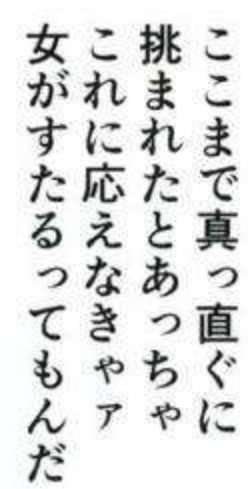 ここまで真っ直ぐに
挑まれたとあっちゃ
これに応えなきゃァ
女がすたるってもんだ